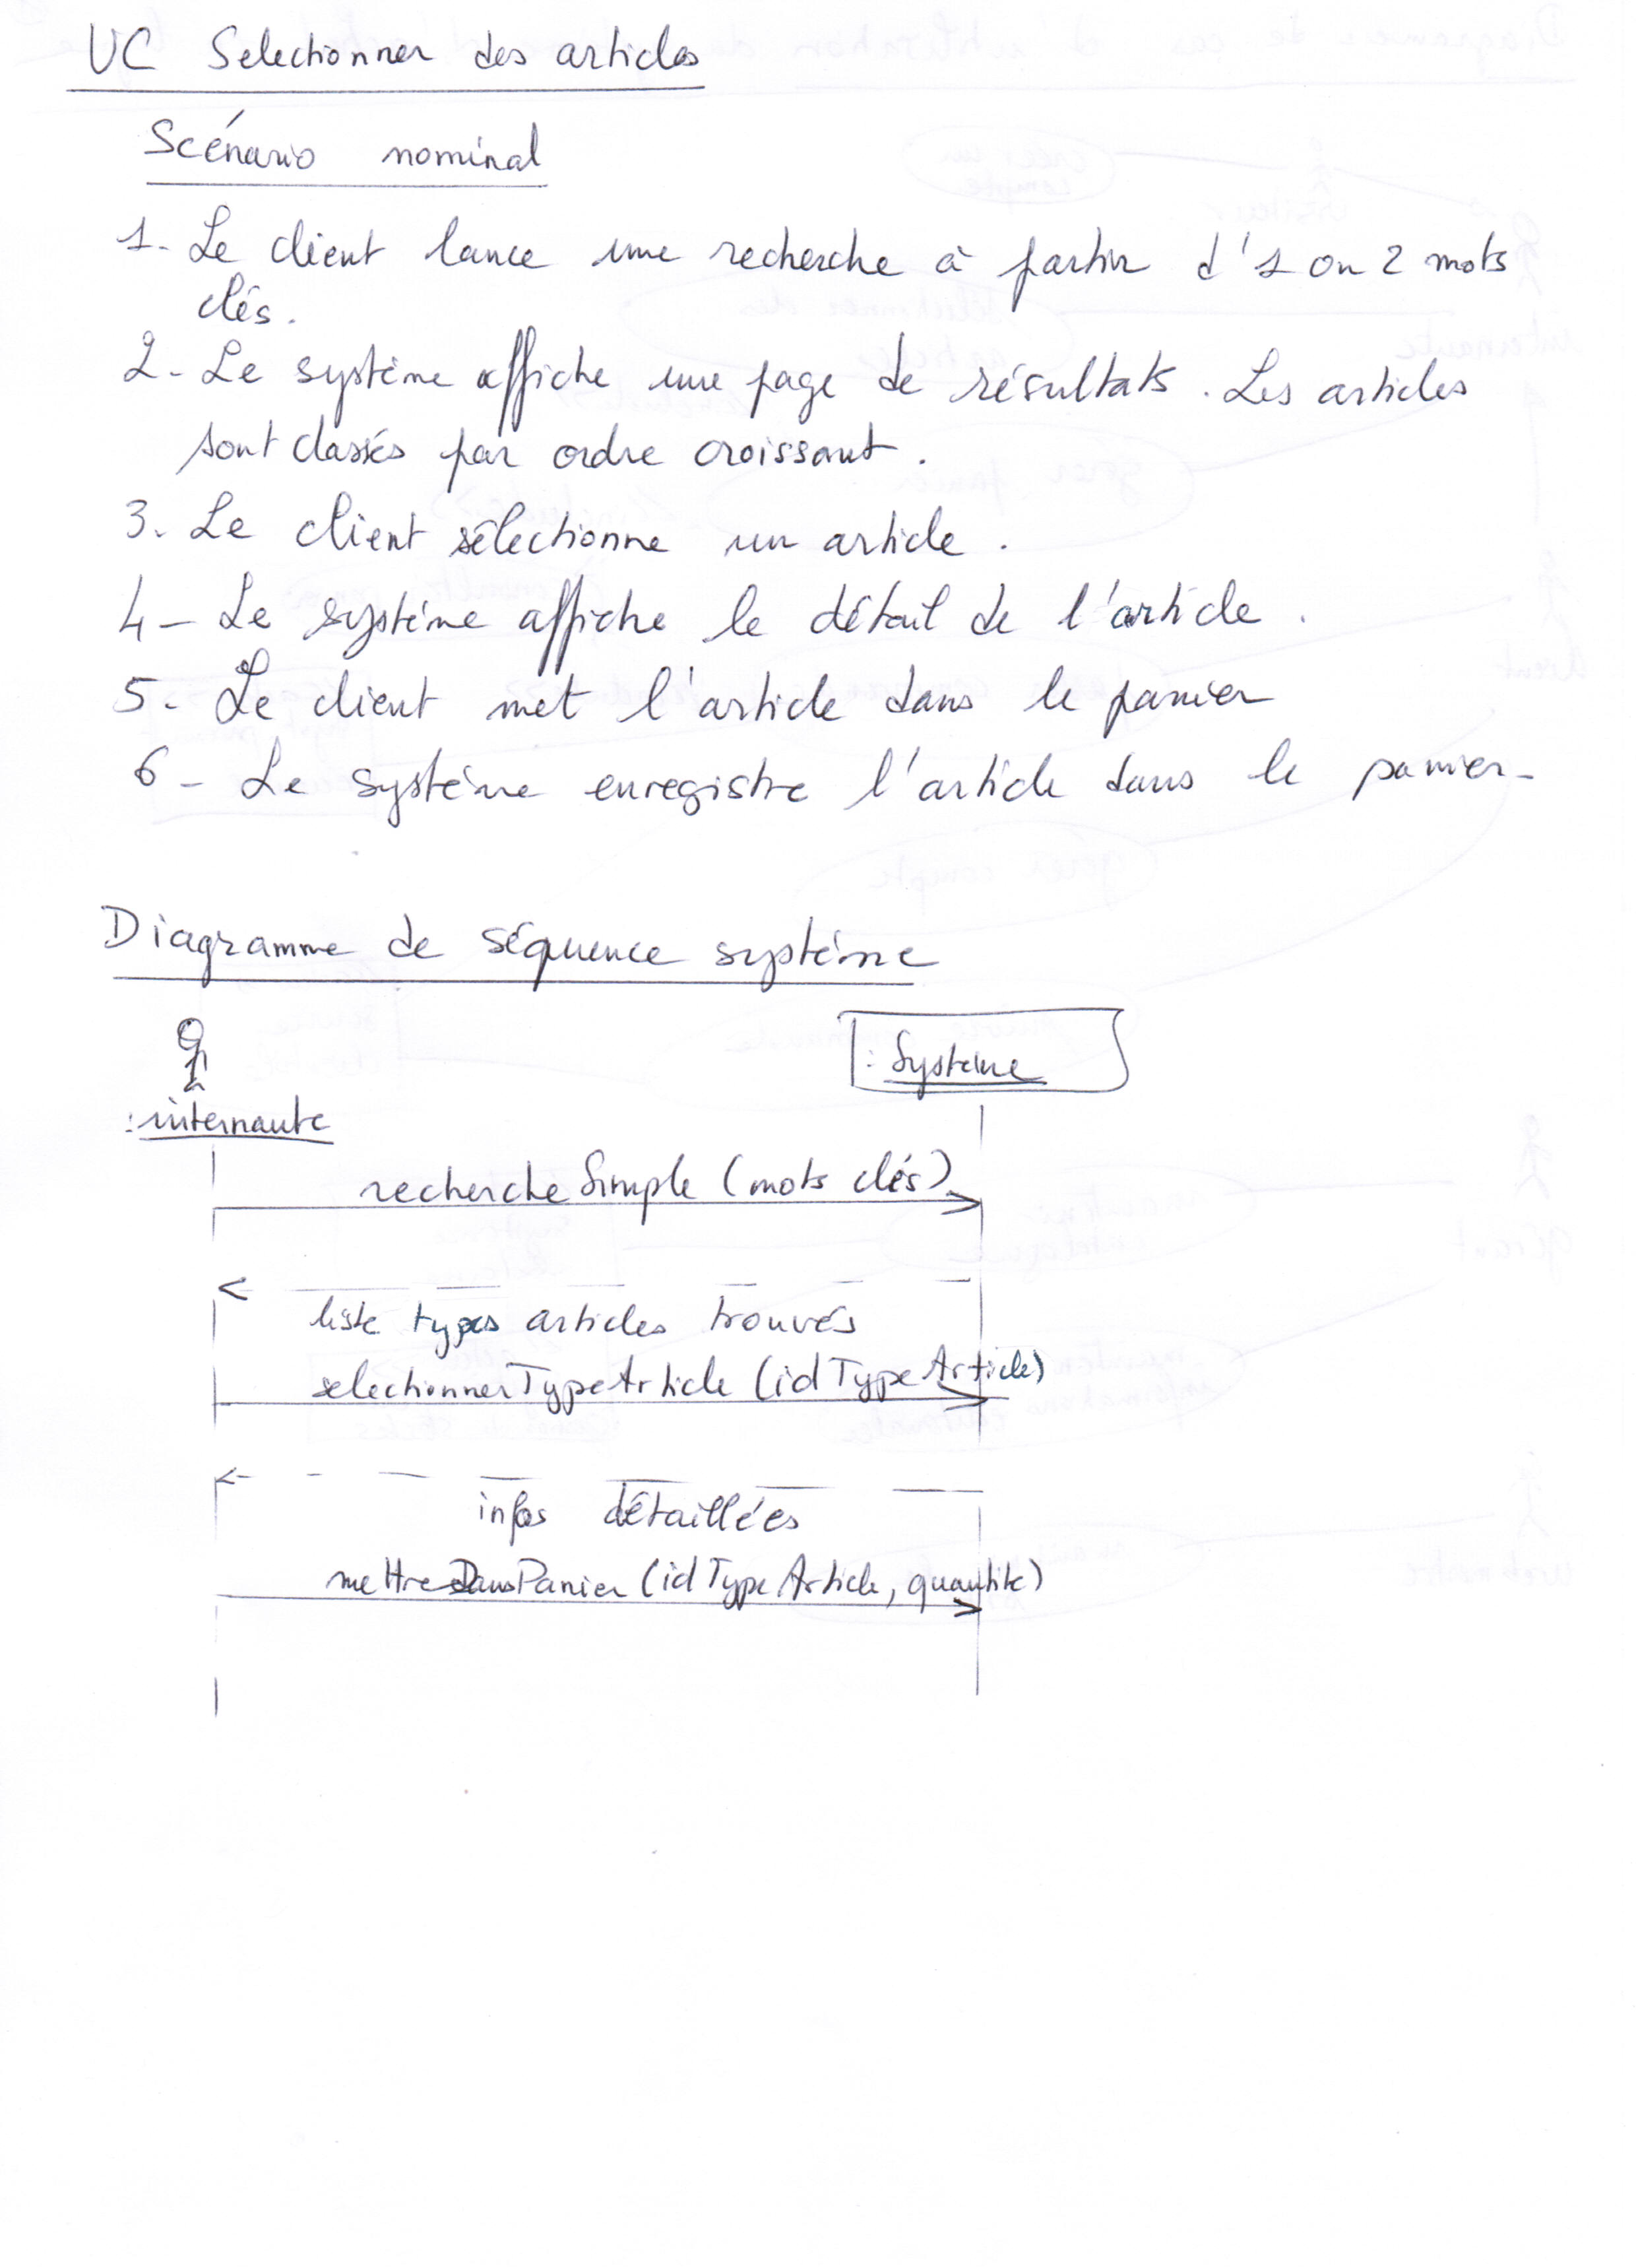 UC Selectionner des articles
Scénario nominal
1. Le client lance une recherche à partir d'1 ou 2 mots
clés.
2. Le système affiche une page de résultats. Les articles
sont classés par ordre croissant.
3. Le client sélectionne un article.
4 - Le système affiche le détail de l'article.
5. Le client met l'article dans le panier
6 - Le système enregistre l'article dans le panier.
Diagramme de séquence système
: Système
:internaute
recherche Simple (mots clés)
liste types articles trouvés
selectionnerTypeArticle (idTypeArticle)
infos détaillées
mettreDansPanier (idTypeArticle, quantite)